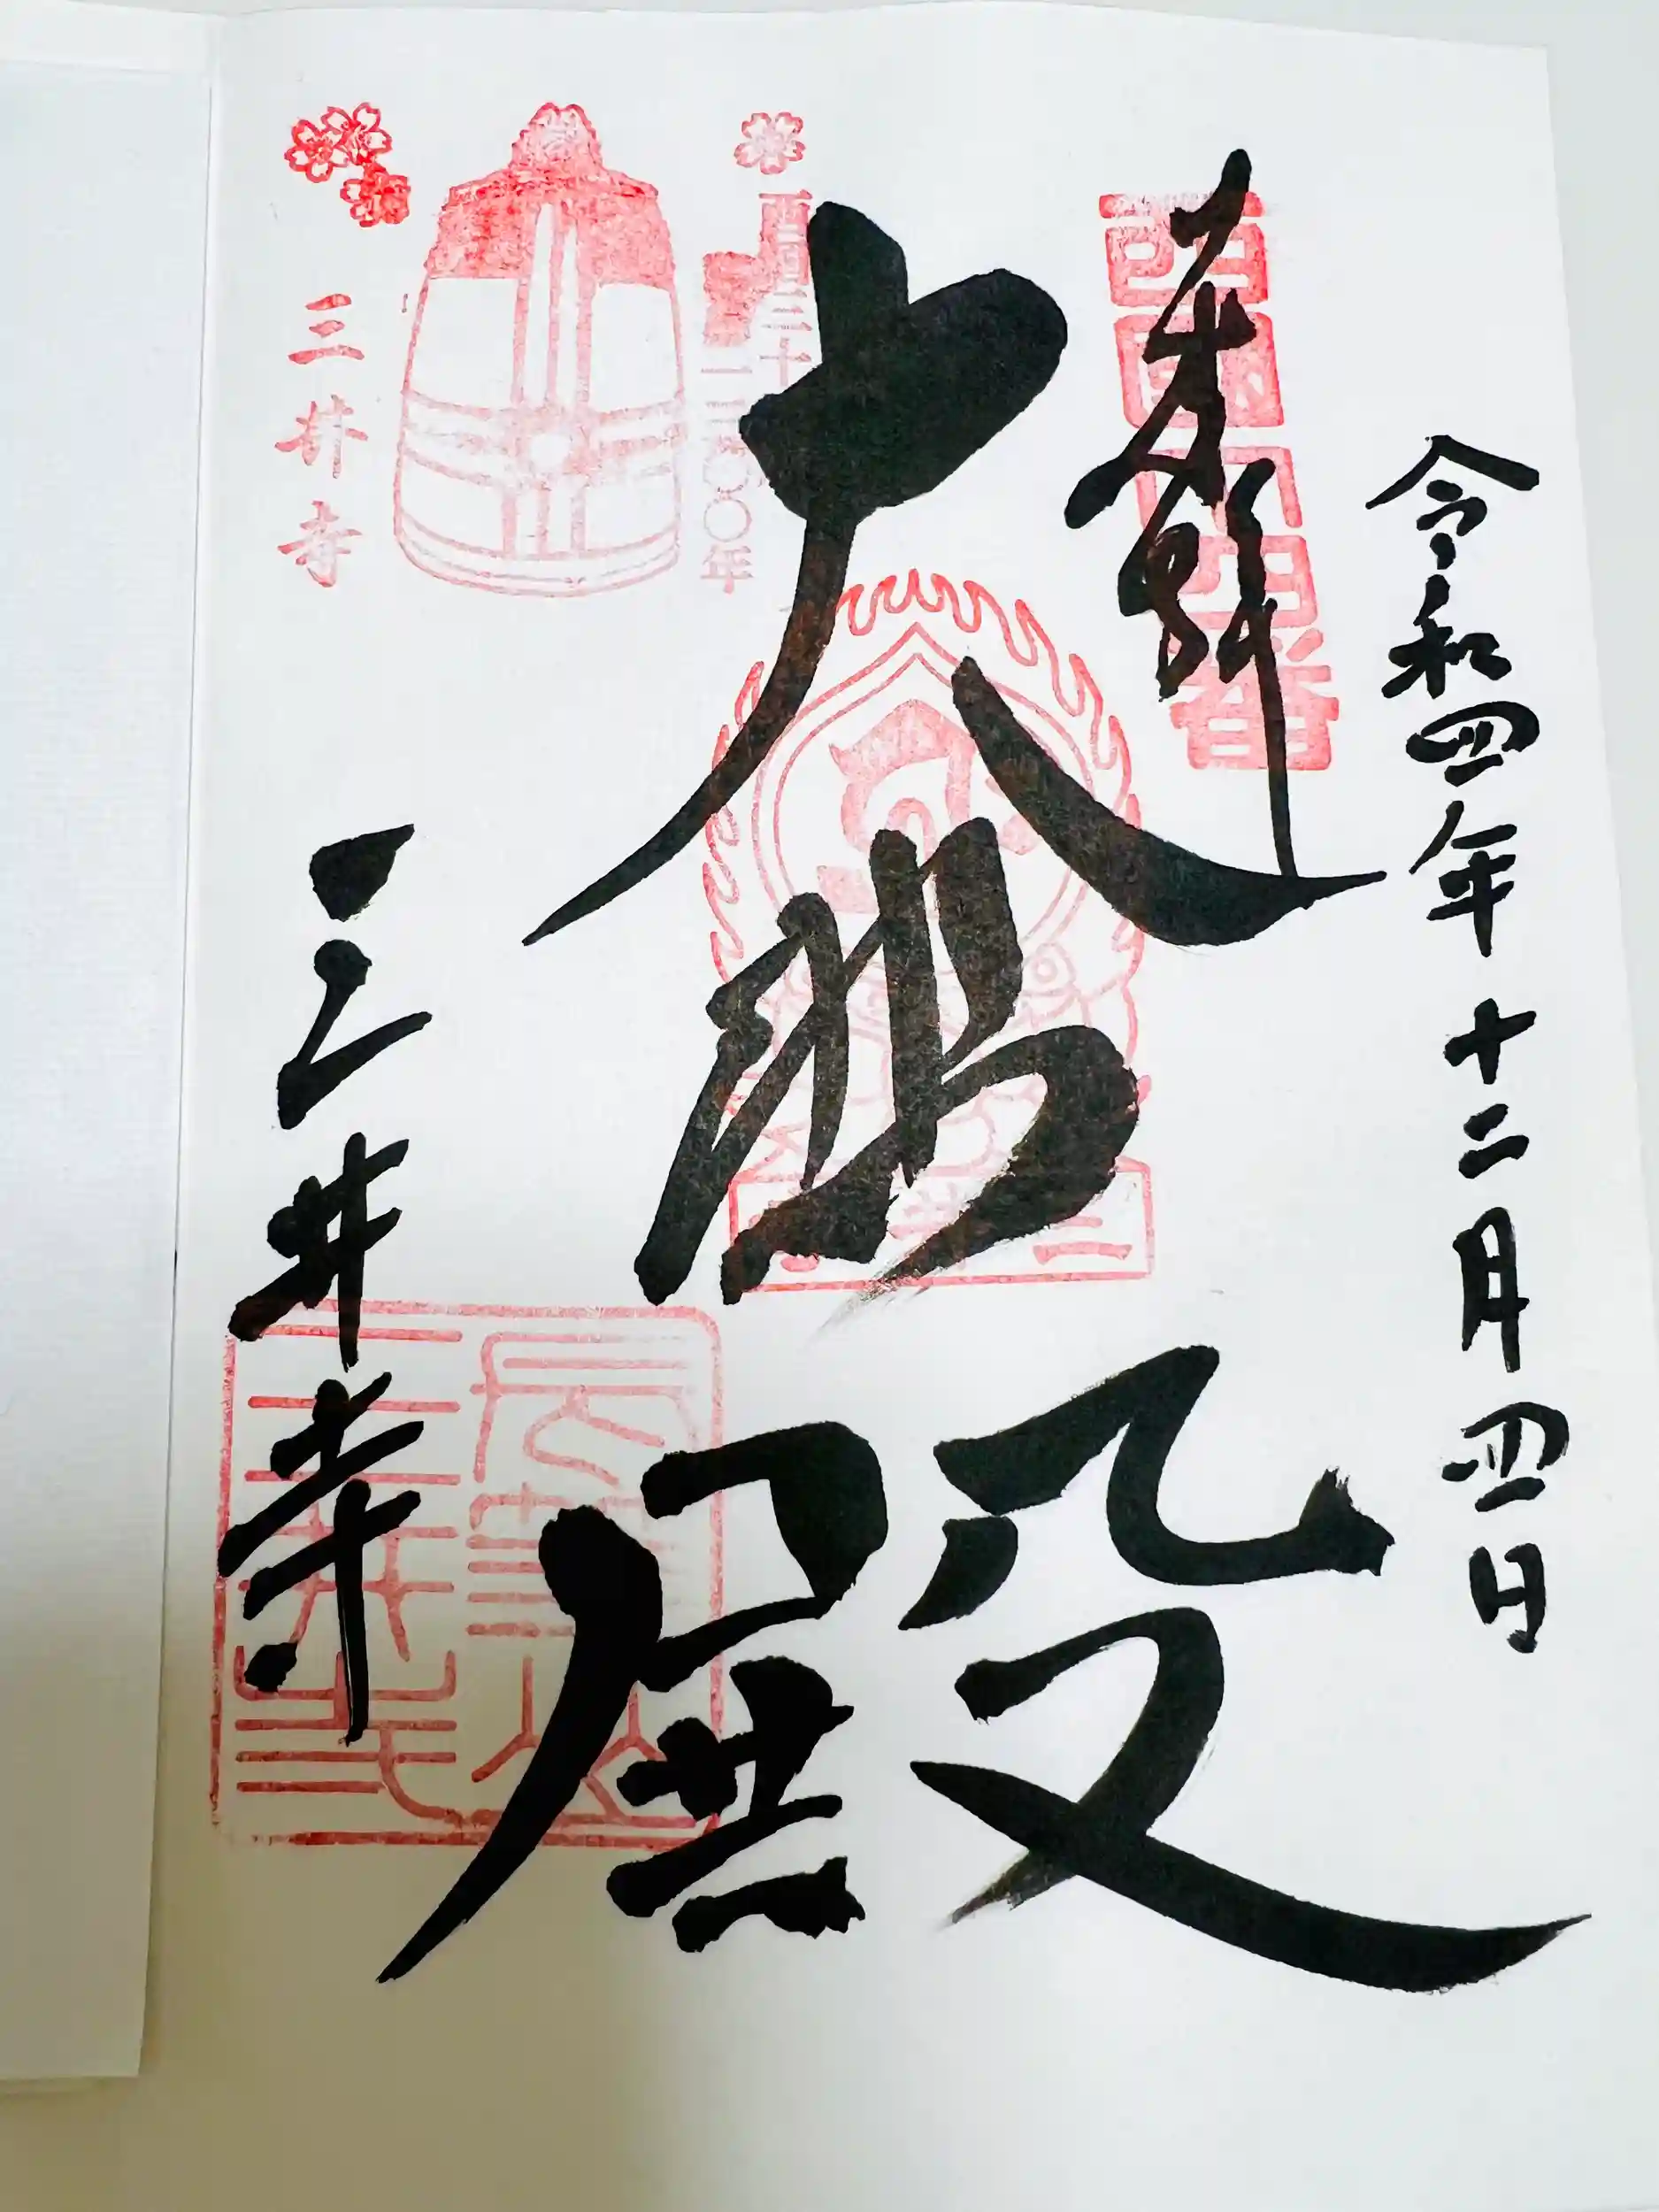 令和四年十二月四日
奉拝
西国十四番
大悲殿
一一〇〇年
三井寺
三井寺